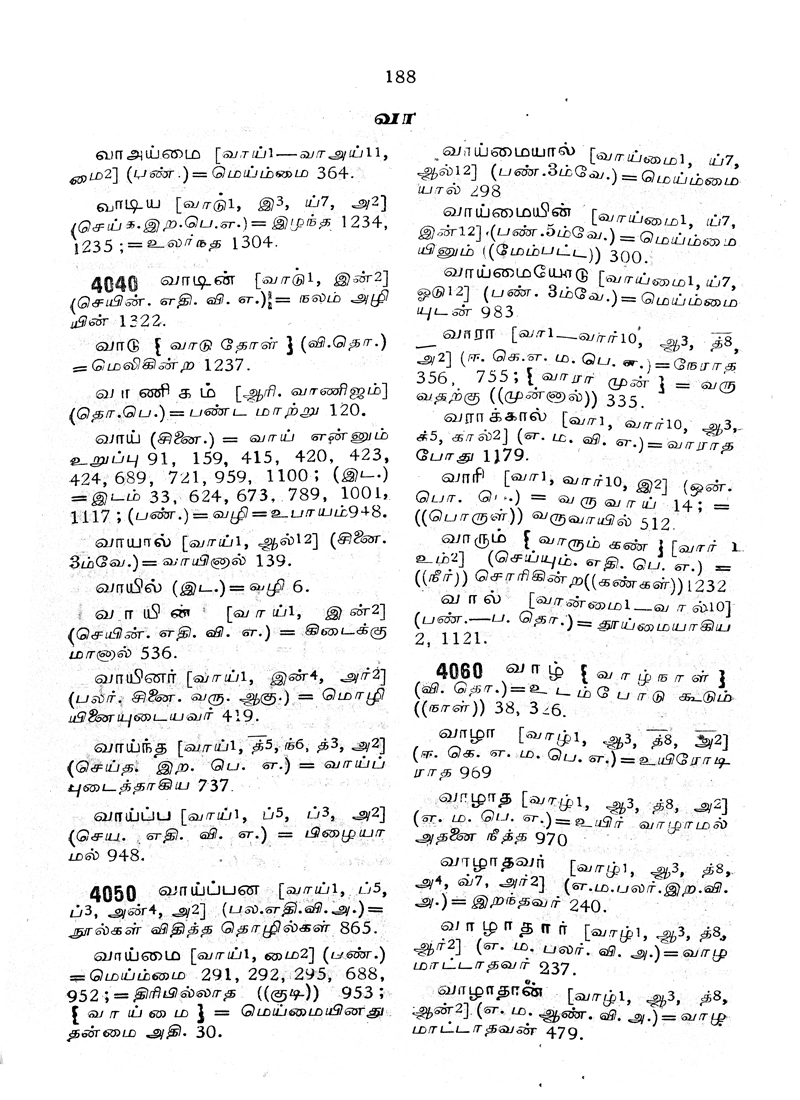 188
வா
வாஅய்மை [வாய்1—வாஅய்11,
மை2] (பண்.)=மெய்ம்மை 364.
வாடிய [வாடு1, இ3, ய்7, அ2]
(செய்த.இற.பெ.எ.)=இழந்த 1234,
1235 ;=உலர்ந்த 1304.
4040 வாடின் [வாடு1, இன்2]
(செயின். எதி. வி. எ.)= நலம் அழி
யின் 1322.
வாடு { வாடு தோள் } (வி.தொ.)
=மெலிகின்ற 1237.
வாணிகம் [ஆரி. வாணிஜம்]
(தொ.பெ.)=பண்ட மாற்று 120.
வாய் (சினை.) = வாய் என்னும்
உறுப்பு 91, 159, 415, 420, 423,
424, 689, 721, 959, 1100 ; (இட.)
=இடம் 33, 624, 673, 789, 1001,
1117 ; (பண்.)=வழி=உபாயம்948.
வாயால் [வாய்1, ஆல்12] (சினை.
3ம்வே.)=வாயினால் 139.
வாயில் (இட.)=வழி 6.
வாயின் [வாய்1, இன்2]
(செயின். எதி. வி. எ.) = கிடைக்கு
மானால் 536.
வாயினர் [வாய்1, இன்4, அர்2]
(பலர். சினை. வரு. ஆகு.) = மொழி
யினையுடையவர் 419.
வாய்ந்த [வாய்1, த்5, ந்6, த்3, அ2]
(செய்த. இற. பெ. எ.) = வாய்ப்
புடைத்தாகிய 737.
வாய்ப்ப [வாய்1, ப்5, ப்3, அ2]
(செய. எதி. வி. எ.) = பிழையா
மல் 948.
4050 வாய்ப்பன [வாய்1, ப்5,
ப்3, அன்4, அ2] (பல.எதி.வி.அ.)=
நூல்கள் விதித்த தொழில்கள் 865.
வாய்மை [வாய்1, மை2] (பண்.)
=மெய்ம்மை 291, 292, 295, 688,
952 ;=திரிபில்லாத ((குடி)) 953 ;
{ வாய்மை } = மெய்மையினது
தன்மை அதி. 30.
வாய்மையால் [வாய்மை1, ய்7,
ஆல்12] (பண்.3ம்வே.)=மெய்ம்மை
யால் 298
வாய்மையின் [வாய்மை1, ய்7,
இன்12] (பண்.5ம்வே.)=மெய்ம்மை
யினும் ((மேம்பட்ட)) 300.
வாய்மையோடு [வாய்மை1, ய்7,
ஓடு12] (பண். 3ம்வே.)=மெய்ம்மை
யுடன் 983
வாரா [வா1—வார்10, ஆ3, த்8,
அ2] (ஈ. கெ.எ. ம. பெ. எ.)=நேராத
356, 755 ; { வாரா முன் } = வரு
வதற்கு ((முன்னால்)) 335.
வராக்கால் [வா1, வார்10, ஆ3,
க்5, கால்2] (எ. ம. வி. எ.)=வாராத
போது 1179.
வாரி [வா1, வார்10, இ2] (ஒன்.
பொ. பெ.) = வருவாய் 14 ; =
((பொருள்)) வருவாயில் 512.
வாரும் { வாரும் கண் } [வார் 1
உம்2] (செய்யும். எதி. பெ. எ.) =
((நீர்)) சொரிகின்ற((கண்கள்))1232
வால் [வான்மை1—வால்10]
(பண்.—ப. தொ.)=தூய்மையாகிய
2, 1121.
4060 வாழ் { வாழ்நாள் }
(வி. தொ.)=உடம்போடு கூடும்
((நாள்)) 38, 326.
வாழா [வாழ்1, ஆ3, த்8, அ2]
(ஈ. கெ. எ. ம. பெ. எ.)=உயிரோடி
ராத 969
வாழாத [வாழ்1, ஆ3, த்8, அ2]
(எ. ம. பெ. எ.)=உயிர் வாழாமல்
அதனை நீத்த 970
வாழாதவர் [வாழ்1, ஆ3, த்8,
அ4, வ்7, அர்2] (எ.ம.பலர்.இற.வி.
அ.)=இறந்தவர் 240.
வாழாதார் [வாழ்1, ஆ3, த்8,
ஆர்2] (எ. ம. பலர். வி. அ.)=வாழ
மாட்டாதவர் 237.
வாழாதான் [வாழ்1, ஆ3, த்8,
ஆன்2] (எ. ம. ஆண். வி. அ.)=வாழ
மாட்டாதவன் 479.